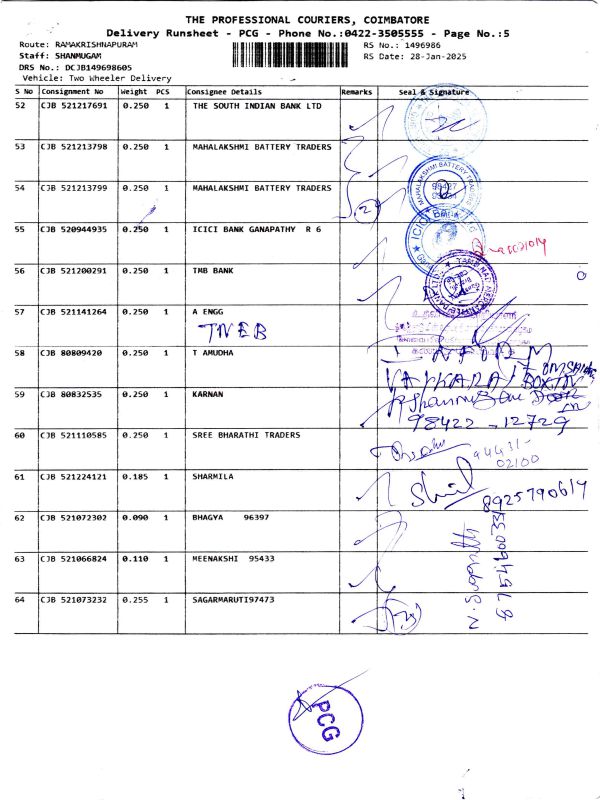 THE PROFESSIONAL COURIERS, COIMBATORE
Delivery Runsheet - PCG - Phone No.:0422-3505555 - Page No.:5
Route: RAMAKRISHNAPURAM RS No.: 1496986
Staff: SHANMUGAM RS Date: 28-Jan-2025
DRS No.: DCJB149698605
Vehicle: Two Wheeler Delivery
S No Consignment No Weight PCS Consignee Details Remarks Seal & Signature
52 CJB 521217691 0.250 1 THE SOUTH INDIAN BANK LTD
53 CJB 521213798 0.250 1 MAHALAKSHMI BATTERY TRADERS
54 CJB 521213799 0.250 1 MAHALAKSHMI BATTERY TRADERS
MAHALAKSHMI BATTERY TRADERS
55 CJB 520944935 0.250 1 ICICI BANK GANAPATHY R 6
56 CJB 521200291 0.250 1 TMB BANK
57 CJB 521141264 0.250 1 A ENGG
TNEB
58 CJB 80809420 0.250 1 T AMUDHA
59 CJB 80832535 0.250 1 KARNAN
98422 - 12729
60 CJB 521110585 0.250 1 SREE BHARATHI TRADERS
94431-
02100
61 CJB 521224121 0.185 1 SHARMILA
8925790614
62 CJB 521072302 0.090 1 BHAGYA 96397
63 CJB 521066824 0.110 1 MEENAKSHI 95433
64 CJB 521073232 0.255 1 SAGARMARUTI97473
PCG